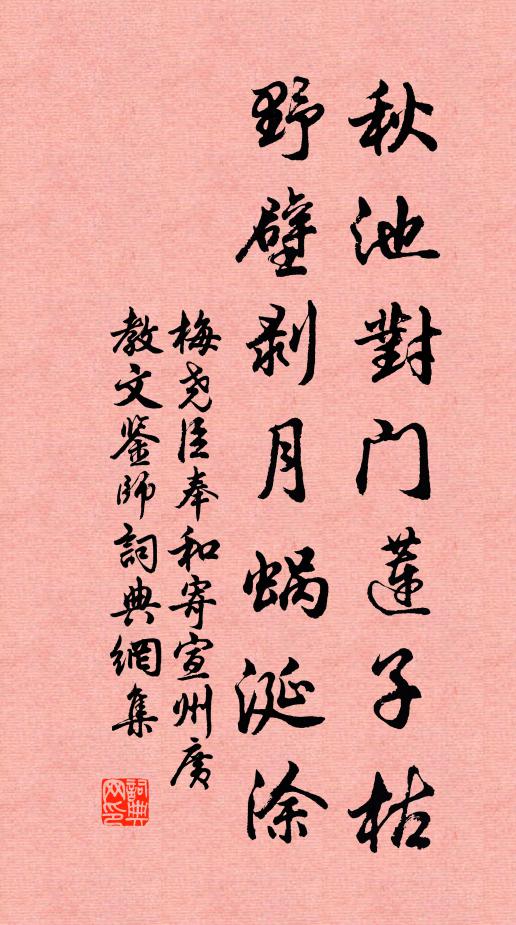 秋池對门蓮子枯
野壁剥月蜗涎涂
梅尧臣奉和寄宣州广
教文鉴师詞典網集
詞典网印